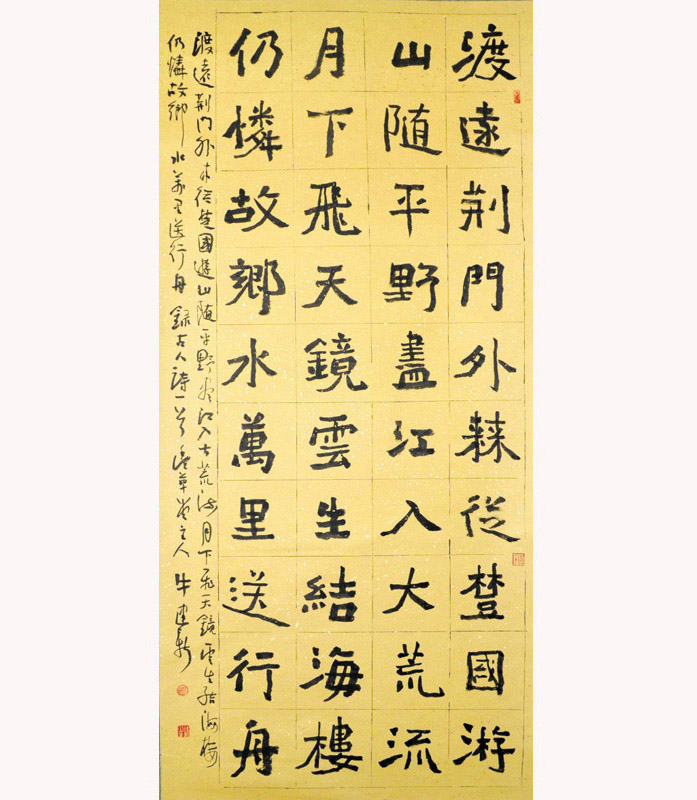 渡遠荊門外棶從楚國游
山随平野盡江入大荒流
月下飛天鏡雲生結海樓
仍憐故鄉水萬里送行舟
渡遠荊門外来從楚國遊山随平野盡江入大荒流月下飛天鏡雲生結海樓
仍憐故鄉水萬里送行舟錄古人詩一首草堂主人牛建新